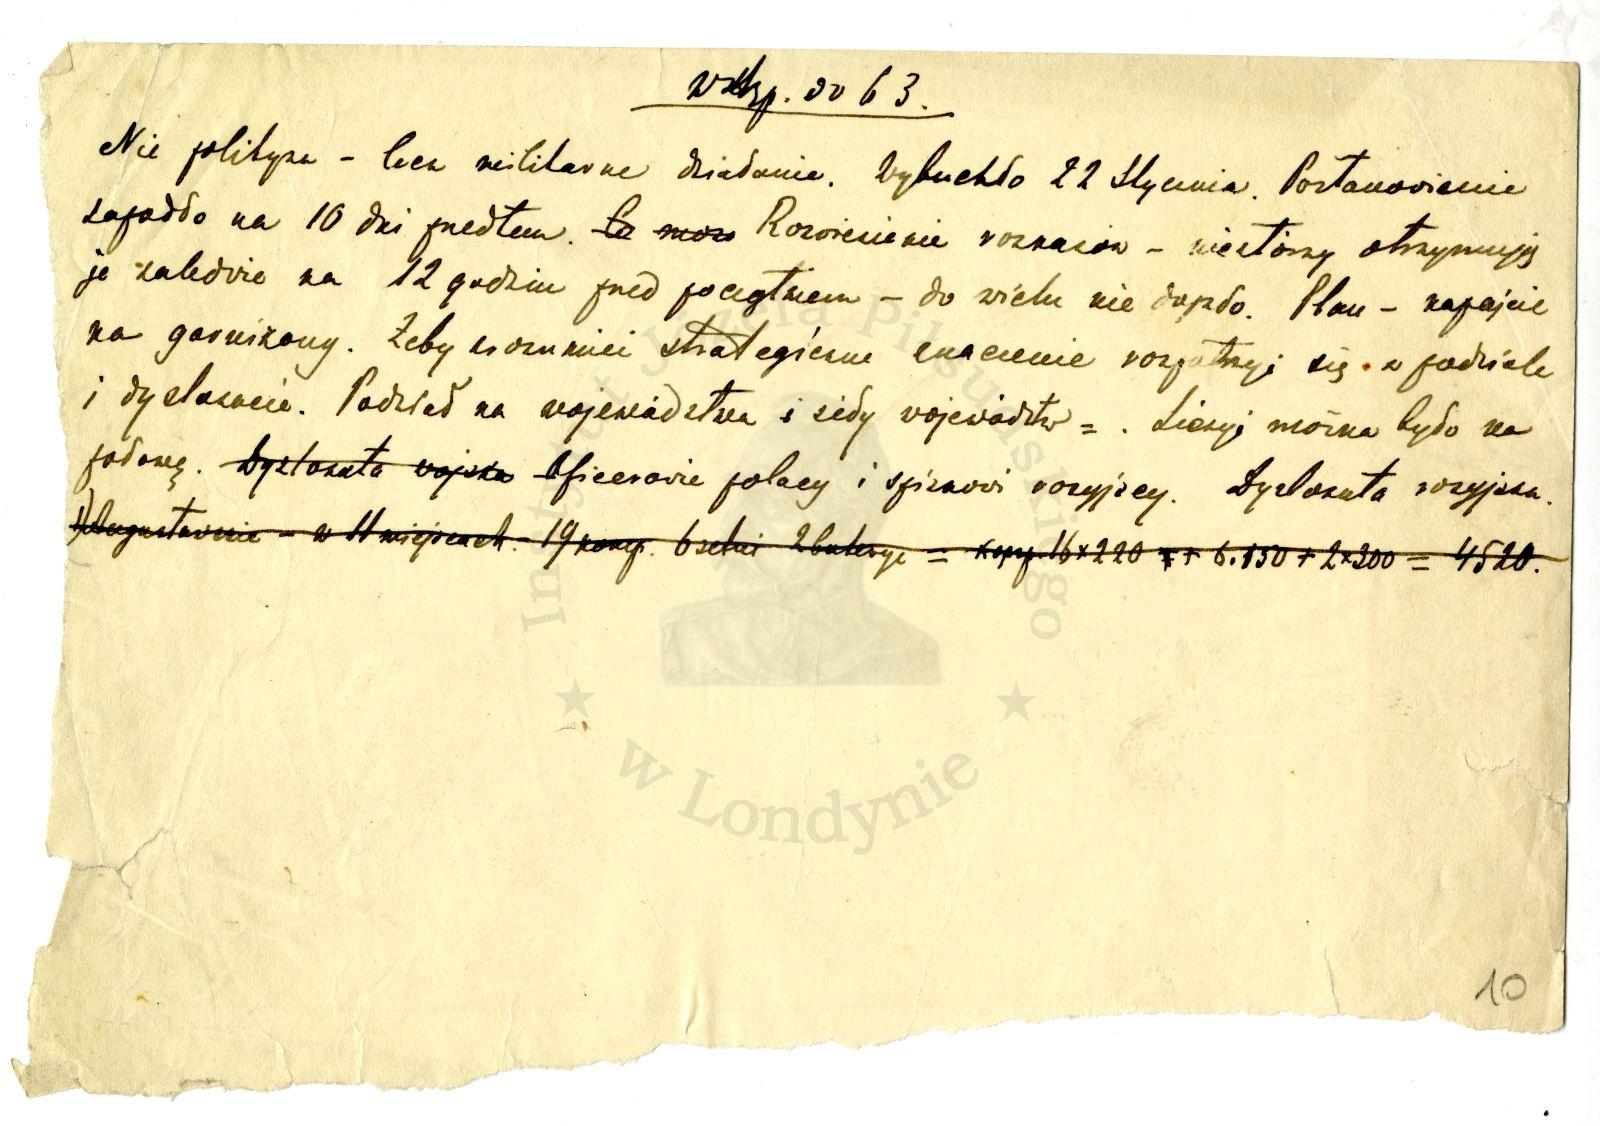 wstęp. do 63.
Nie polityka – lecz militarne działanie. Wybuchło 22 Stycznia. Postanowienie
zapadło na 10 dni przedtem. Rozwiezienie rozkazów – niektórzy otrzymują
je zaledwie na 12 godzin przed początkiem – do wielu nie doszło. Plan – napaście
na garnizony. Żeby zrozumieć strategiczne znaczenie rozpatrzyć się w podziale
i dyslokacie. Podział na województwa i siły województw = . Liczyć można było na
połowę. Dyslokata wojska Oficerowie polacy i spiskowi rosyjscy. Dyslokata rosyjska.
1) Augustowskie – w 11 miejscach. 19 komp. 6 setni 2 baterye = komp. 16×220 + 6.150 + 2×300 = 4520.
10
Instytut Józefa Piłsudskiego
w Londynie